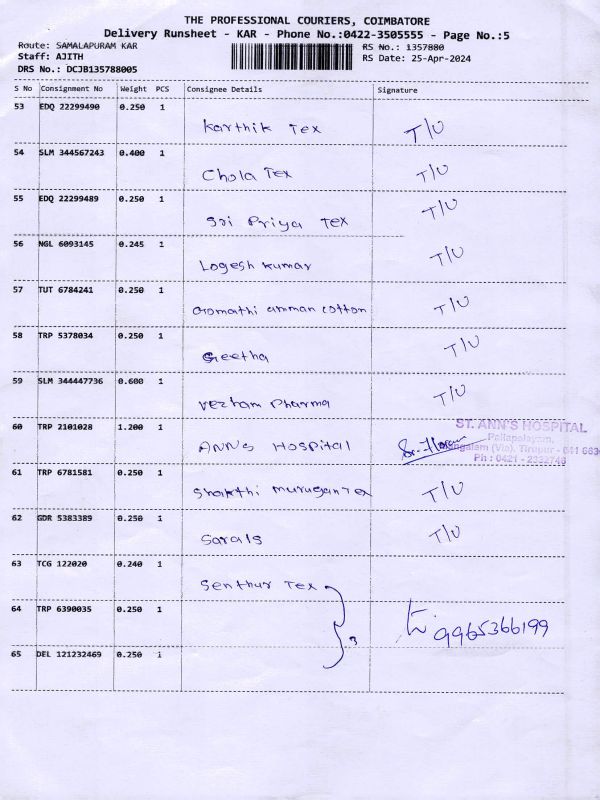 THE PROFESSIONAL COURIERS, COIMBATORE
Delivery Runsheet - KAR - Phone No.:0422-3505555 - Page No.:5
Route: SAMALAPURAM KAR RS No.: 1357880
Staff: AJITH RS Date: 25-Apr-2024
DRS No.: DCJB135788005
S No Consignment No Weight PCS Consignee Details Signature
53 EDQ 22299490 0.250 1
Karthik Tex T/U
54 SLM 344567243 0.400 1
Chola Tex T/U
55 EDQ 22299489 0.250 1
Sri Priya Tex T/U
56 NGL 6093145 0.245 1
Logesh kumar T/U
57 TUT 6784241 0.250 1
Gomathi amman cotton T/U
58 TRP 5378034 0.250 1
Geetha T/U
59 SLM 344447736 0.600 1
Pharma T/U
60 TRP 2101028 1.200 1
ANNS HOSPITAL
ST. ANN'S HOSPITAL
Pallapalayam,
Mangalam (Via), Tirupur - 641 663
Ph : 0421 - 2332746
61 TRP 6781581 0.250 1
Shakthi murugan Tex T/U
62 GDR 5383389 0.250 1
Sarals T/U
63 TCG 122020 0.240 1
Senthur Tex
64 TRP 6390035 0.250 1
3 9965366199
65 DEL 121232469 0.250 1